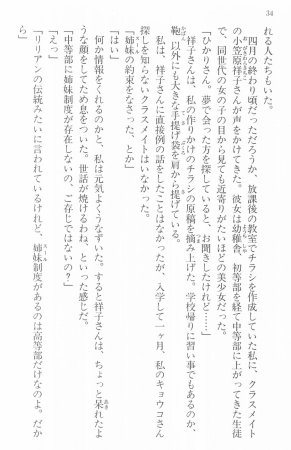 34
れる人たちもいた。
四月の終わり頃だっただろうか、放課後の教室でチラシを作成していた私に、クラスメイト
の小笠原祥子さんが声をかけてきた。彼女は幼稚舎、初等部を経て中等部に上がってきた生徒
で、同世代の女の子の目から見ても近寄りがたいほどの美少女だった。
「ひかりさん。夢で会った方を探していると、お聞きしたけれど……」
祥子さんは、私の作りかけのチラシの原稿を摘み上げた。学校帰りに習い事でもあるのか、
鞄以外にも大きな手提げ袋を肩から提げている。
私は、祥子さんに直接例の話をしたことはなかったが、入学して一ヶ月、私のキョウコさん
探しを知らないクラスメイトはいなかった。
「姉妹の約束をなさった、とか」
何か情報をくれるのかと、私は元気よくうなずいた。すると祥子さんは、ちょっと呆れたよ
うな顔をしてため息をついた。世話が焼けるわね、といった感じだ。
「中等部に姉妹制度が存在しないの、ご存じではないの?」
「えっ」
「リリアンの伝統みたいに言われているけれど、姉妹制度があるのは高等部だけなのよ。だか
ら」